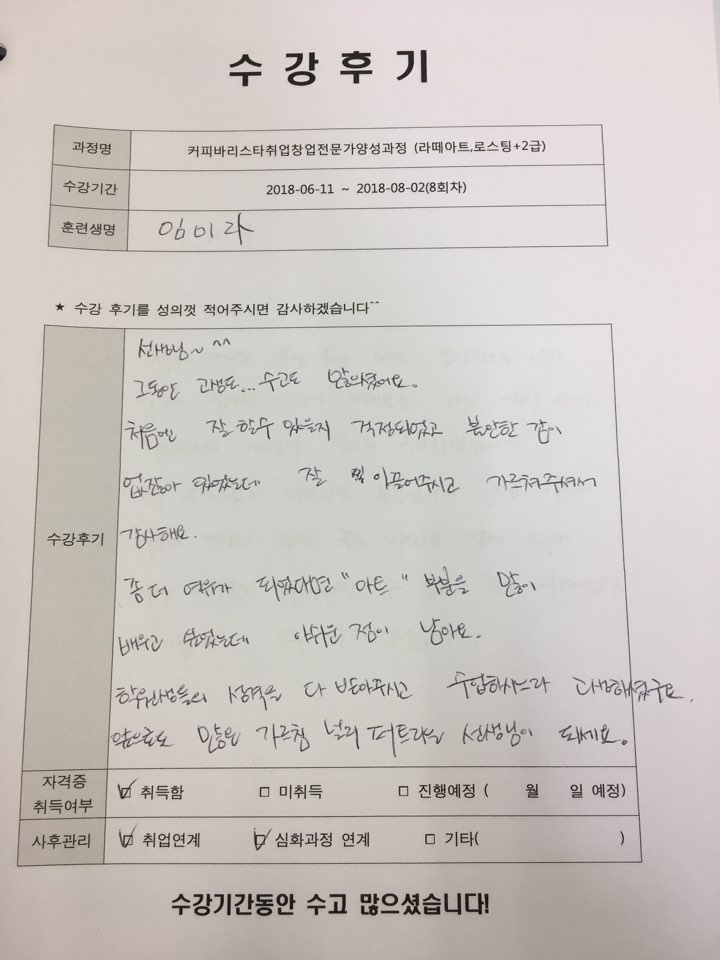 수 강 후 기
과정명 커피바리스타취업창업전문가양성과정 (라떼아트,로스팅+2급)
수강기간 2018-06-11 ~ 2018-08-02(8회차)
훈련생명 임미라
★ 수강 후기를 성의껏 적어주시면 감사하겠습니다^^
수강후기
선생님~ ^^
그동안 고생도... 수고도 많으셨어요.
처음에 잘 할수 있을지 걱정되었고 불안한 감이
없잖아 있었는데 잘 이끌어주시고 가르쳐주셔서
감사해요.
좀 더 여유가 되었다면 "아트" 부분을 많이
배우고 싶었는데 아쉬운 점이 남아요.
학유생들의 성격을 다 받아주시고 수업하시느라 대변하셨구요.
앞으로도 많은 가르침 널리 퍼트리는 선생님이 되세요.
자격증 취득여부 ☑ 취득함 □ 미취득 □ 진행예정 ( 월 일 예정)
사후관리 ☑ 취업연계 ☑ 심화과정 연계 □ 기타( )
수강기간동안 수고 많으셨습니다!